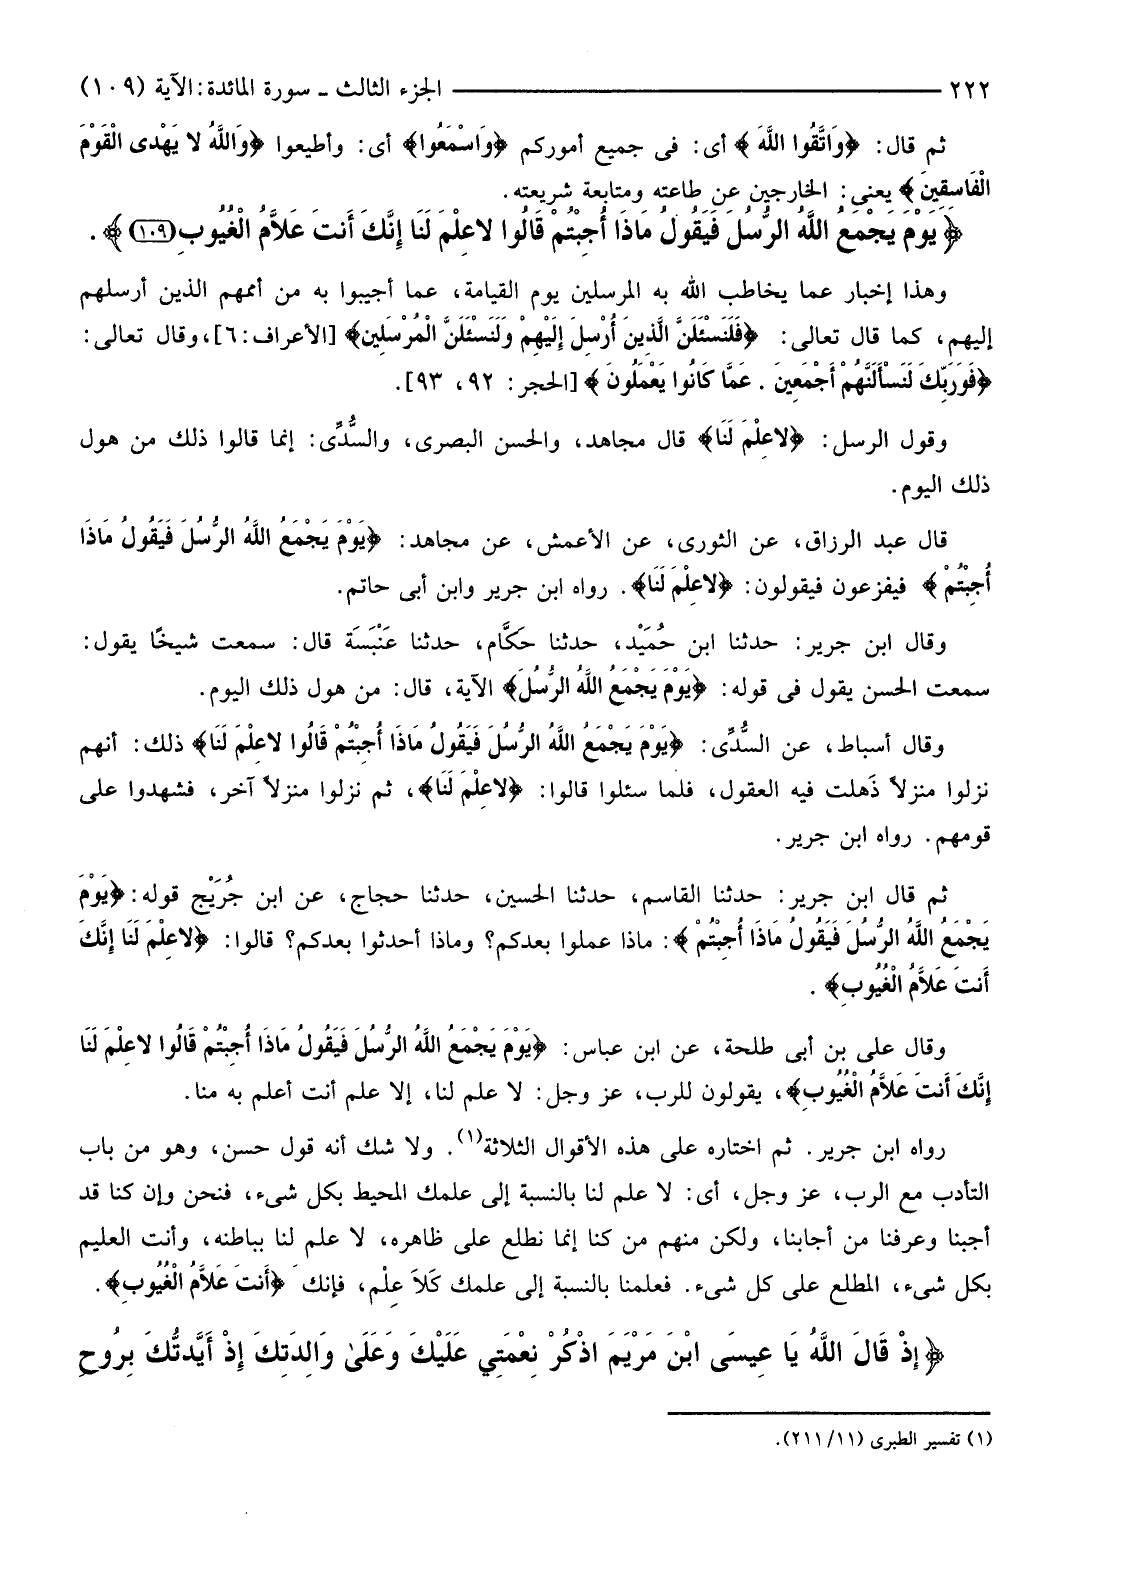 ٢٢٢ ـــــــــــــ الجزء الثالث ـ سورة المائدة: الآية (١٠٩)
ثم قال: ﴿وَاتَّقُوا اللَّهَ﴾ أى: فى جميع أموركم ﴿وَاسْمَعُوا﴾ أى: وأطيعوا ﴿وَاللَّهُ لا يَهْدِى الْقَوْمَ
الْفَاسِقِينَ﴾ يعنى: الخارجين عن طاعته ومتابعة شريعته.
﴿يَوْمَ يَجْمَعُ اللَّهُ الرُّسُلَ فَيَقُولُ مَاذَا أُجِبْتُمْ قَالُوا لا عِلْمَ لَنَا إِنَّكَ أَنتَ عَلاَّمُ الْغُيُوبِ (١٠٩)﴾.
وهذا إخبار عما يخاطب الله به المرسلين يوم القيامة، عما أجيبوا به من أممهم الذين أرسلهم
إليهم، كما قال تعالى: ﴿فَلَنَسْئَلَنَّ الَّذِينَ أُرْسِلَ إِلَيْهِمْ وَلَنَسْئَلَنَّ الْمُرْسَلِين﴾ [الأعراف: ٦]، وقال تعالى:
﴿فَوَرَبِّكَ لَنَسْأَلَنَّهُمْ أَجْمَعِينَ . عَمَّا كَانُوا يَعْمَلُونَ﴾ [الحجر: ٩٢، ٩٣].
وقول الرسل: ﴿لا عِلْمَ لَنَا﴾ قال مجاهد، والحسن البصرى، والسُّدِّى: إنما قالوا ذلك من هول
ذلك اليوم.
قال عبد الرزاق، عن الثورى، عن الأعمش، عن مجاهد: ﴿يَوْمَ يَجْمَعُ اللَّهُ الرُّسُلَ فَيَقُولُ مَاذَا
أُجِبْتُمْ﴾ فيفزعون فيقولون: ﴿لا عِلْمَ لَنَا﴾. رواه ابن جرير وابن أبى حاتم.
وقال ابن جرير: حدثنا ابن حُمَيْد، حدثنا حَكَّام، حدثنا عَنْبَسَة قال: سمعت شيخًا يقول:
سمعت الحسن يقول فى قوله: ﴿يَوْمَ يَجْمَعُ اللَّهُ الرُّسُلَ﴾ الآية، قال: من هول ذلك اليوم.
وقال أسباط، عن السُّدِّى: ﴿يَوْمَ يَجْمَعُ اللَّهُ الرُّسُلَ فَيَقُولُ مَاذَا أُجِبْتُمْ قَالُوا لا عِلْمَ لَنَا﴾ ذلك: أنهم
نزلوا منزلاً ذَهلت فيه العقول، فلما سئلوا قالوا: ﴿لا عِلْمَ لَنَا﴾، ثم نزلوا منزلاً آخر، فشهدوا على
قومهم. رواه ابن جرير.
ثم قال ابن جرير: حدثنا القاسم، حدثنا الحسين، حدثنا حجاج، عن ابن جُرَيْج قوله: ﴿يَوْمَ
يَجْمَعُ اللَّهُ الرُّسُلَ فَيَقُولُ مَاذَا أُجِبْتُمْ﴾: ماذا عملوا بعدكم؟ وماذا أحدثوا بعدكم؟ قالوا: ﴿لا عِلْمَ لَنَا إِنَّكَ
أَنتَ عَلاَّمُ الْغُيُوبِ﴾ .
وقال على بن أبى طلحة، عن ابن عباس: ﴿يَوْمَ يَجْمَعُ اللَّهُ الرُّسُلَ فَيَقُولُ مَاذَا أُجِبْتُمْ قَالُوا لا عِلْمَ لَنَا
إِنَّكَ أَنتَ عَلاَّمُ الْغُيُوبِ﴾، يقولون للرب، عز وجل: لا علم لنا، إلا علم أنت أعلم به منا.
رواه ابن جرير. ثم اختاره على هذه الأقوال الثلاثة(١). ولا شك أنه قول حسن، وهو من باب
التأدب مع الرب، عز وجل، أى: لا علم لنا بالنسبة إلى علمك المحيط بكل شىء، فنحن وإن كنا قد
أجبنا وعرفنا من أجابنا، ولكن منهم من كنا إنما نطلع على ظاهره، لا علم لنا بباطنه، وأنت العليم
بكل شىء، المطلع على كل شىء. فعلمنا بالنسبة إلى علمك كَلاَ عِلْم، فإنك ﴿أَنتَ عَلاَّمُ الْغُيُوبِ﴾.
﴿إِذْ قَالَ اللَّهُ يَا عِيسَى ابْنَ مَرْيَمَ اذْكُرْ نِعْمَتِي عَلَيْكَ وَعَلَىٰ وَالِدَتِكَ إِذْ أَيَّدتُّكَ بِرُوحِ
(١) تفسير الطبرى (٢١١/١١).